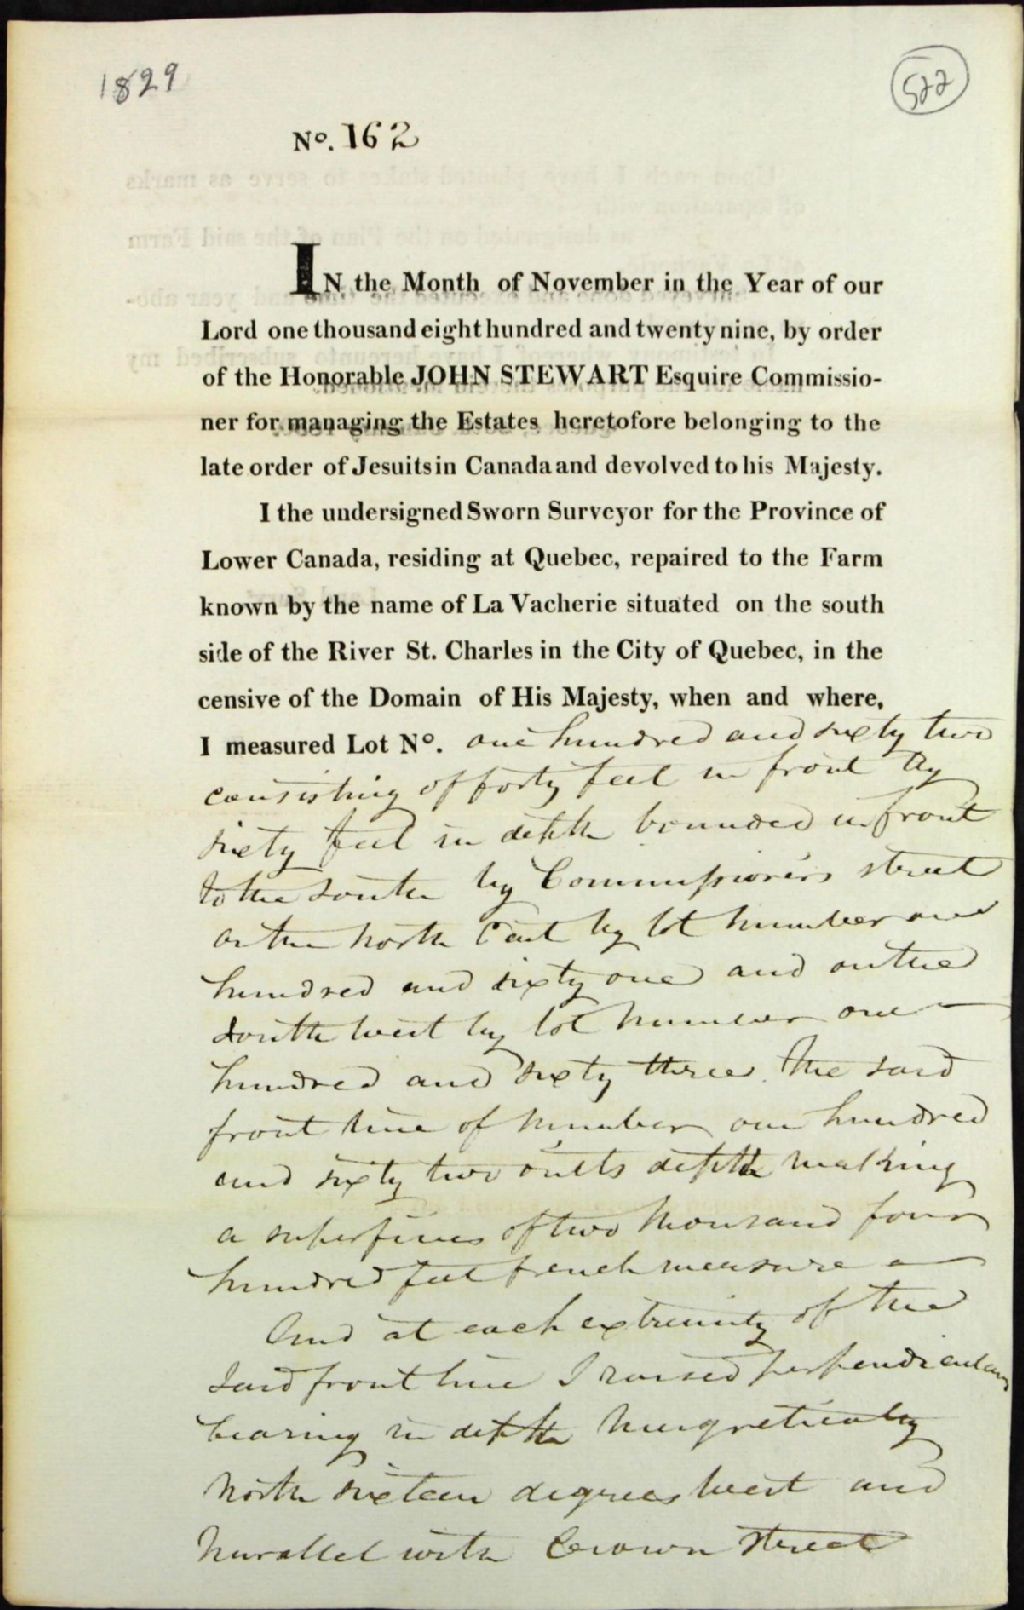 1829
522
No. 162
IN the Month of November in the Year of our
Lord one thousand eight hundred and twenty nine, by order
of the Honorable JOHN STEWART Esquire Commissio-
ner for managing the Estates heretofore belonging to the
late order of Jesuits in Canada and devolved to his Majesty.
I the undersigned Sworn Surveyor for the Province of
Lower Canada, residing at Quebec, repaired to the Farm
known by the name of La Vacherie situated on the south
side of the River St. Charles in the City of Quebec, in the
censive of the Domain of His Majesty, when and where,
I measured Lot No. one hundred and sixty two
consisting of forty feet in front by
sixty feet in depth bounded in front
to the south by Commissioners street
on the North East by lot number one
hundred and sixty one and on the
South West by lot number one
hundred and sixty three. The said
front line of number one hundred
and sixty two & its depth making
a superficies of two thousand four
hundred feet french measure
And at each extremity of the
said front line I raised perpendiculars
bearing in depth Magnetically
North sixteen degrees West and
Parallel with Crown Street